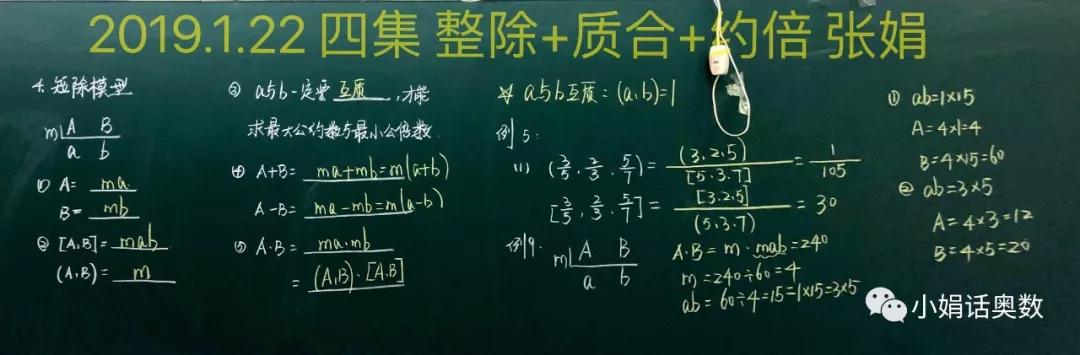 2019.1.22 四集 整除+质合+约倍 张娟
4. 短除模型
m A B
a b
① A= ma
B= mb
② [A,B]= mab
(A,B)= m
③ a与b一定要 互质 ,才能
求最大公约数与最小公倍数.
④ A+B= ma+mb=m(a+b)
A-B= ma-mb=m(a-b)
⑤ A·B= ma·mb
= (A,B)·[A,B]
☆ a与b互质:(a,b)=1
例5:
(1) (3/5, 2/3, 5/7) = (3,2,5)/[5,3,7] = 1/105
[3/5, 2/3, 5/7] = [3,2,5]/(5,3,7) = 30
例9.
m A B
a b
A·B= m·mab=240
m=240÷60=4
ab=60÷4=15=1×15=3×5
① ab=1×15
A=4×1=4
B=4×15=60
② ab=3×5
A=4×3=12
B=4×5=20
小娟话奥数